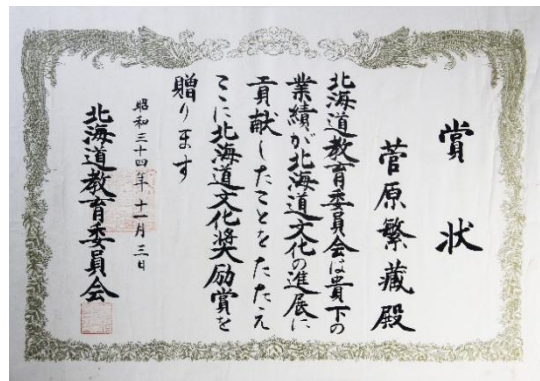 賞状
菅原繁蔵殿
北海道教育委員会は貴下の
業績が北海道文化の進展に
貢献したことをたたえ
ここに北海道文化奨励賞を
贈ります
昭和三十四年十一月三日
北海道教育委員会